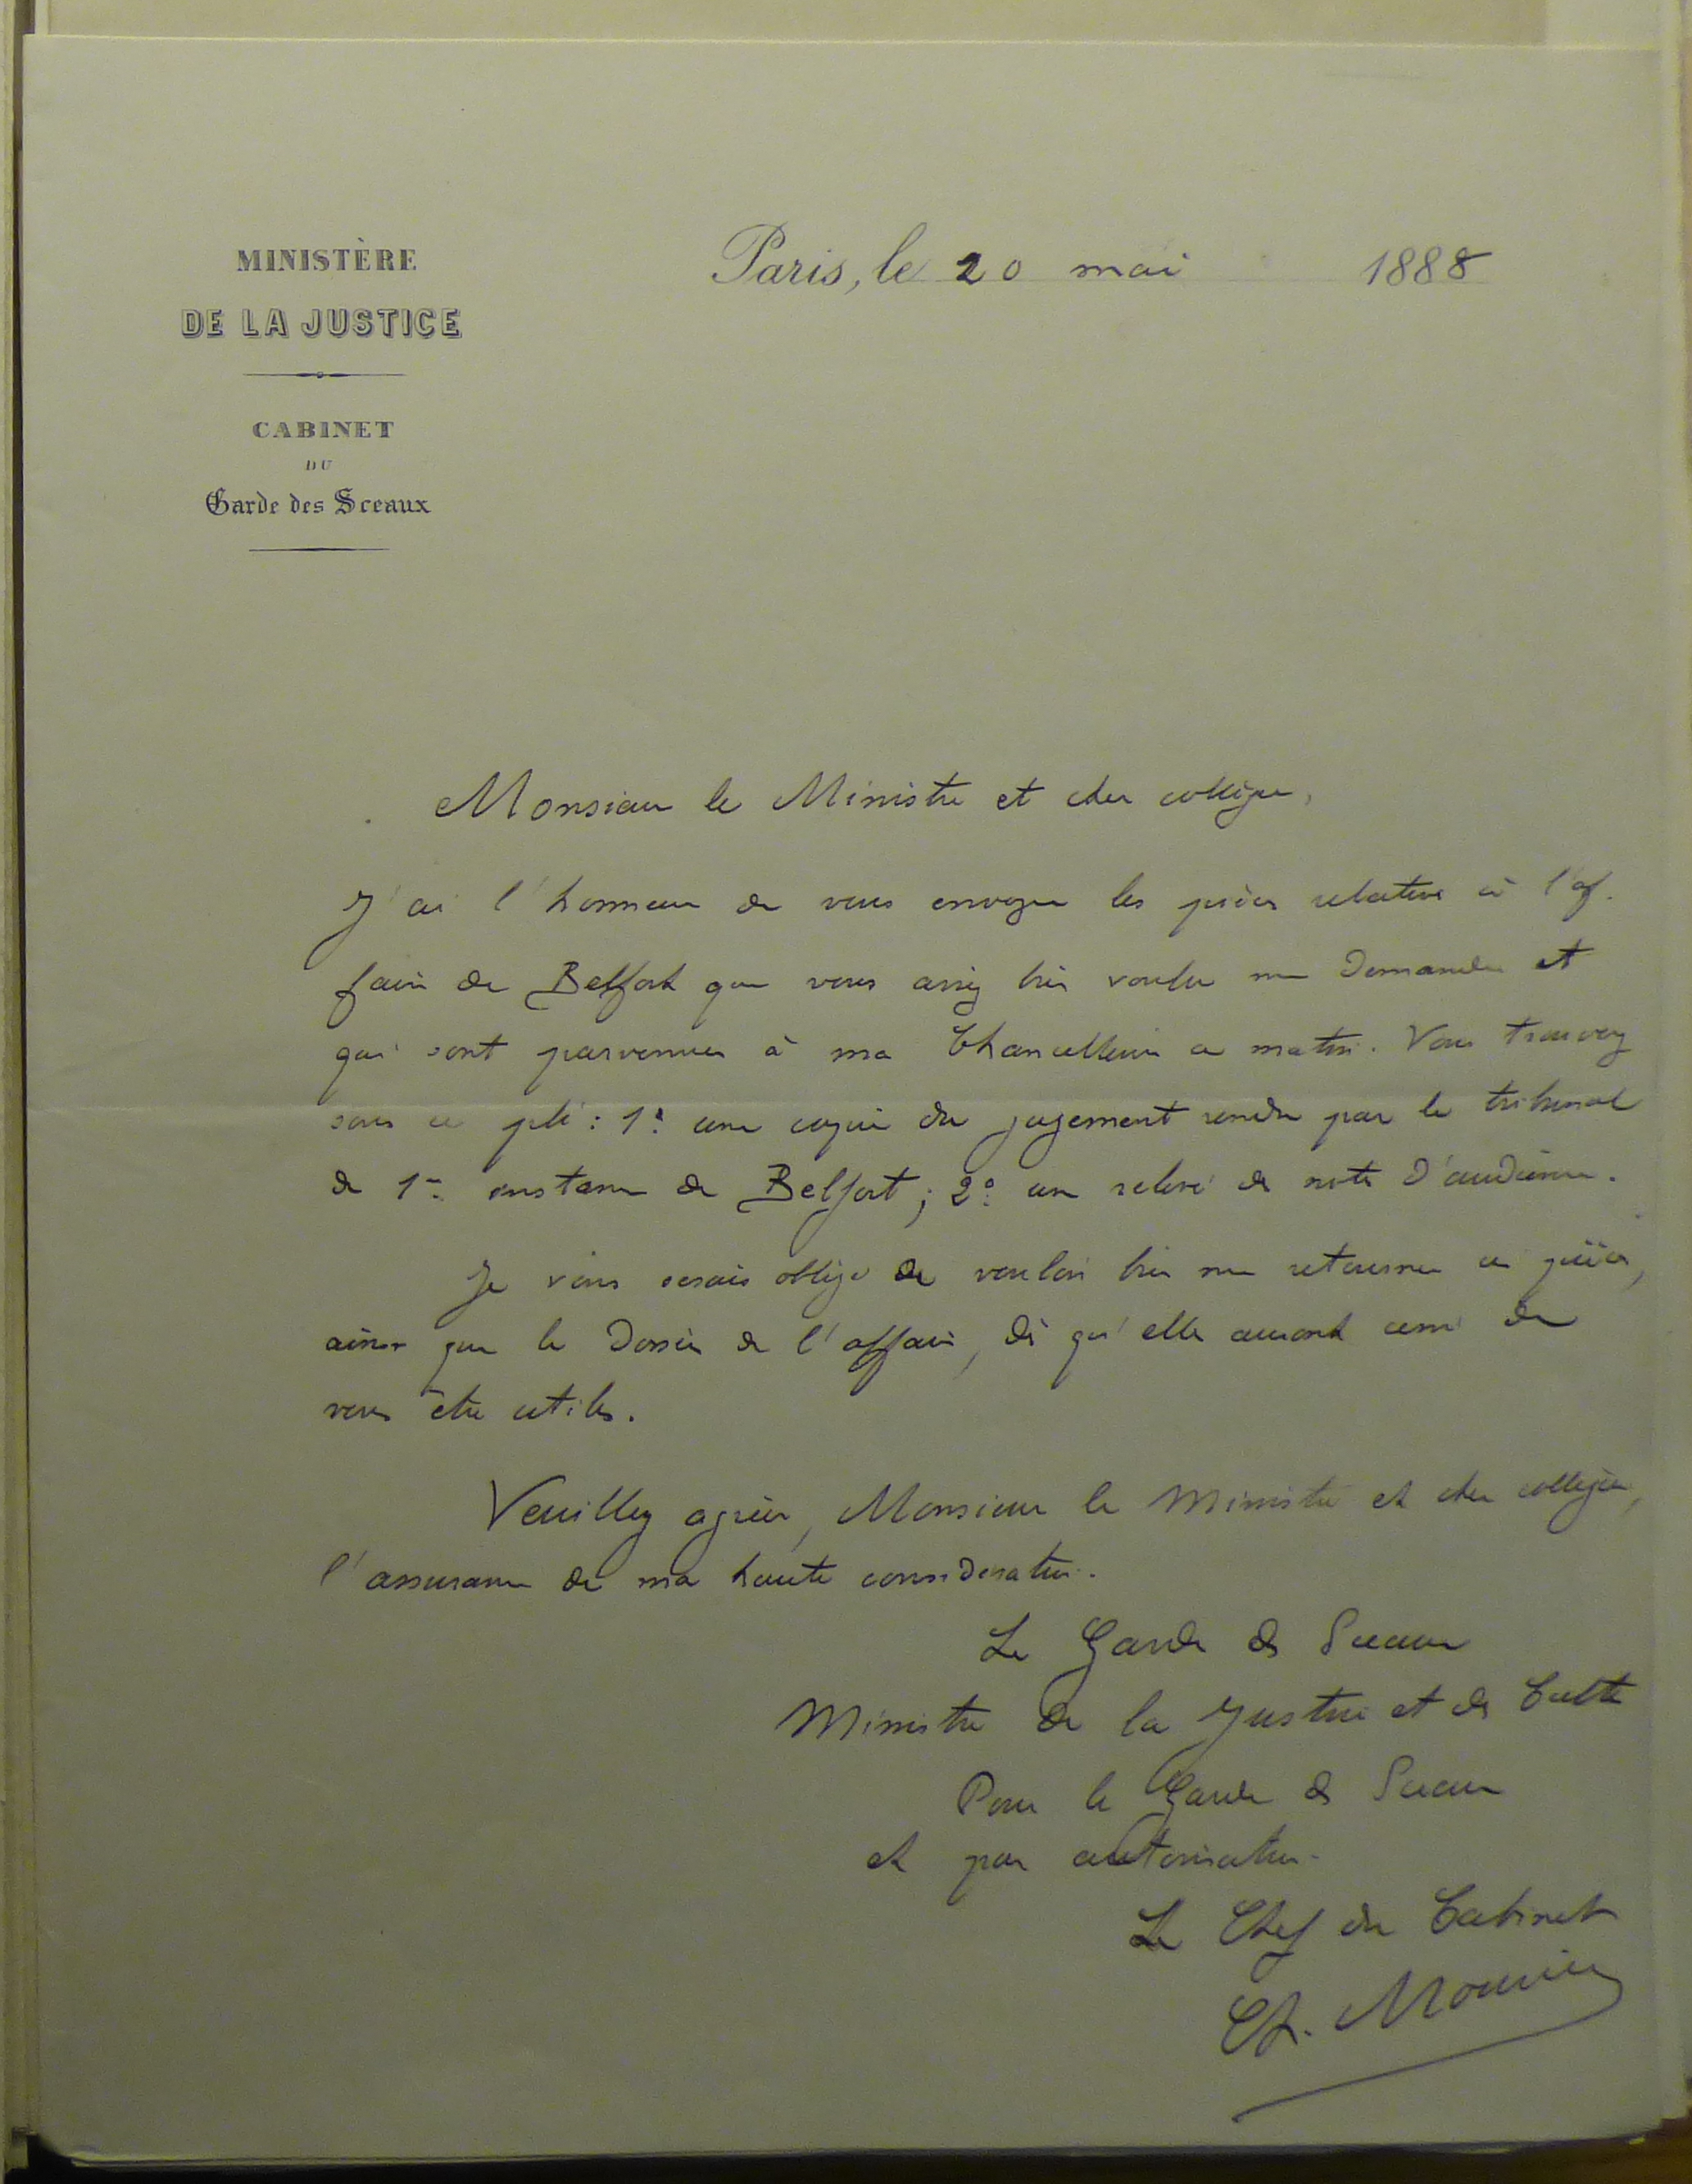 MINISTÈRE
DE LA JUSTICE
CABINET
DU
Garde des Sceaux
Paris, le 20 mai 1888
Monsieur le Ministre et cher collègue,
J'ai l'honneur de vous envoyer les pièces relatives à l'af-
faire de Belfort que vous aviez bien voulu me demander et
qui sont parvenues à ma Chancellerie ce matin. Vous trouverez
sous ce pli : 1º une copie du jugement rendu par le tribunal
de 1re instance de Belfort ; 2º un relevé des notes d'audience.
Je vous serais obligé de vouloir bien me retourner ces pièces,
ainsi que le dossier de l'affaire, dès qu'elles auront cessé de
vous être utiles.
Veuillez agréer, Monsieur le Ministre et cher collègue,
l'assurance de ma haute considération.
Le Garde des Sceaux
Ministre de la Justice et des Cultes
Pour le Garde des Sceaux
et par autorisation.
Le Chef du Cabinet
Ch.